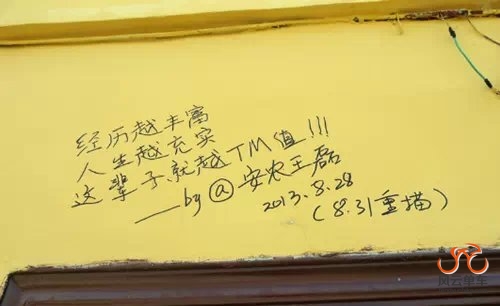 经历越丰富
人生越充实
这辈子就越TM值!!!
——by@安农王磊
2013.8.28
(8.31重描)
风云单车